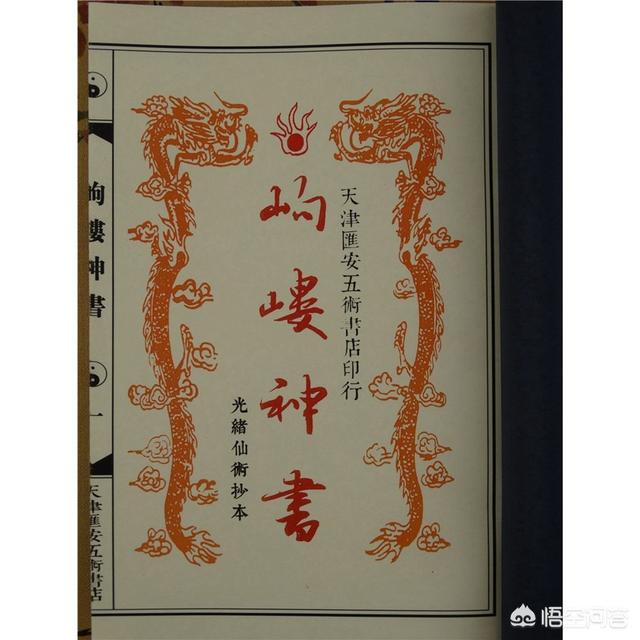 天津匯安五術書店印行
岣嶁神書
光緒仙術抄本
岣嶁神書
一
天津匯安五術書店
悟空问答